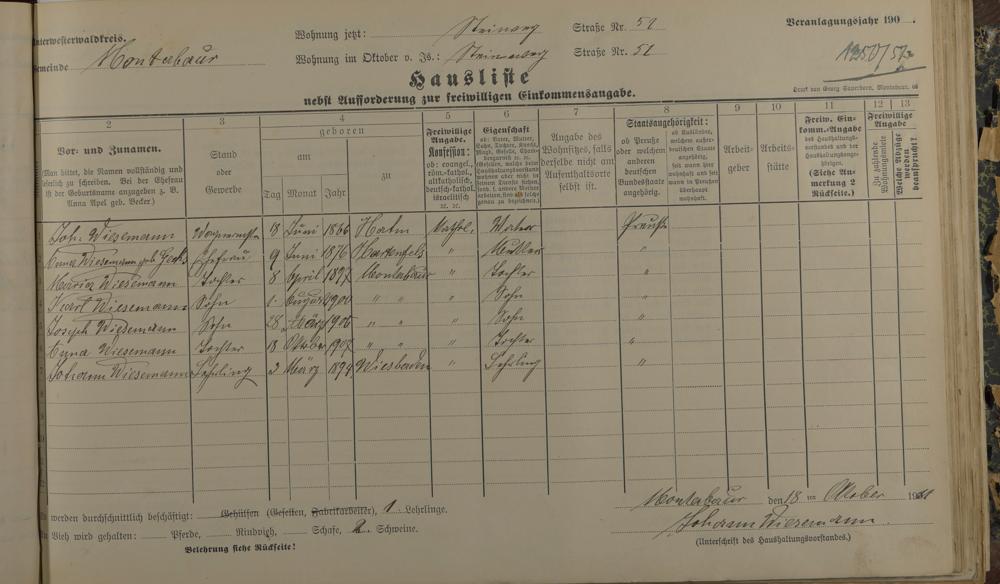 Unterwesterwaldkreis.
Wohnung jetzt: Steinweg Straße Nr. 51
Veranlagungsjahr 190 .
Gemeinde Montabaur
Wohnung im Oktober v. Js.: Steinweg Straße Nr. 51
Hausliste
nebst Aufforderung zur freiwilligen Einkommensangabe.
Druck von Georg Sauerborn, Montabaur.
2 3 4 5 6 7 8 9 10 11 12 13
Vor- und Zunamen.
(Man bittet, die Namen vollständig und
leserlich zu schreiben. Bei der Ehefrau
ist der Geburtsname anzugeben z. B.
Anna Apel geb. Becker.)
Stand
oder
Gewerbe
geboren
am
Tag Monat Jahr
zu
Freiwillige
Angabe.
Konfession:
ob: evangel.,
röm.-kathol.,
altkatholisch,
deutsch-kathol.
israelitisch
rc. rc.
Eigenschaft
ob: Vater, Mutter,
Angabe des
Wohnsitzes, falls
derselbe nicht am
Aufenthaltsorte
selbst ist.
Staatsangehörigkeit:
ob Preuße
oder welchem
anderen
deutschen
Bundesstaate
angehörig.
ob Ausländer,
welchem außer-
deutschen Staate
angehörig,
seit wann hier
wohnhaft und seit
wann in Preußen
überhaupt
wohnhaft.
Arbeit-
geber
Arbeits-
stätte
Freiw. Ein-
komm.-Angabe
des Haushaltungs-
vorstandes und der
Haushaltungsange-
hörigen.
(Siehe An-
merkung 2
Rückseite.)
Freiwillige
Angabe
Zu zahlende
Wohnungsmiete
Welche Abzüge
werden
beansprucht?
Joh. Wiesemann 18 Juni 1866 Kathl. Vater
Anna Wiesemann geb. Ehefrau 9 Juni 1876 Hartenfels " Mutter "
Maria Wiesemann Tochter 8 April 1897 Montabaur " Tochter "
Karl Wiesemann Sohn 1. August 1900 " " " Sohn "
Joseph Wiesemann Sohn 28. März 1906 " " " Sohn "
Anna Wiesemann Tochter 18 Oktober 1907 " " " Tochter "
Johann Wiesemann Lehrling 2 März 1894 Wiesbaden " Lehrling "
Montabaur den 18 ten Oktober 19
Es werden durchschnittlich beschäftigt: Gehülfen (Gesellen, Fabrikarbeiter), 1 Lehrlinge.
Johann Wiesemann
An Vieh wird gehalten: Pferde, Rindvieh, Schafe, 2 Schweine.
(Unterschrift des Haushaltungsvorstandes.)
Belehrung siehe Rückseite!